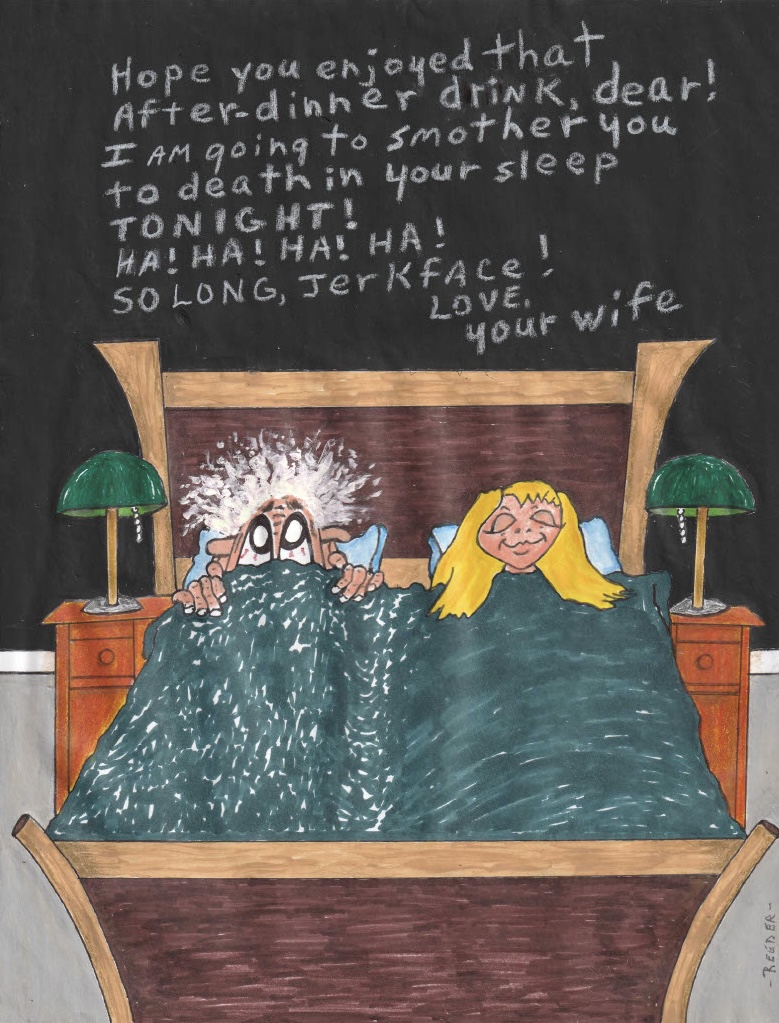 Hope you enjoyed that
After-dinner drink, dear!
I AM going to smother you
to death in your sleep
TONIGHT!
HA! HA! HA! HA!
SO LONG, Jerkface!
LOVE,
your wife
- REEDER -